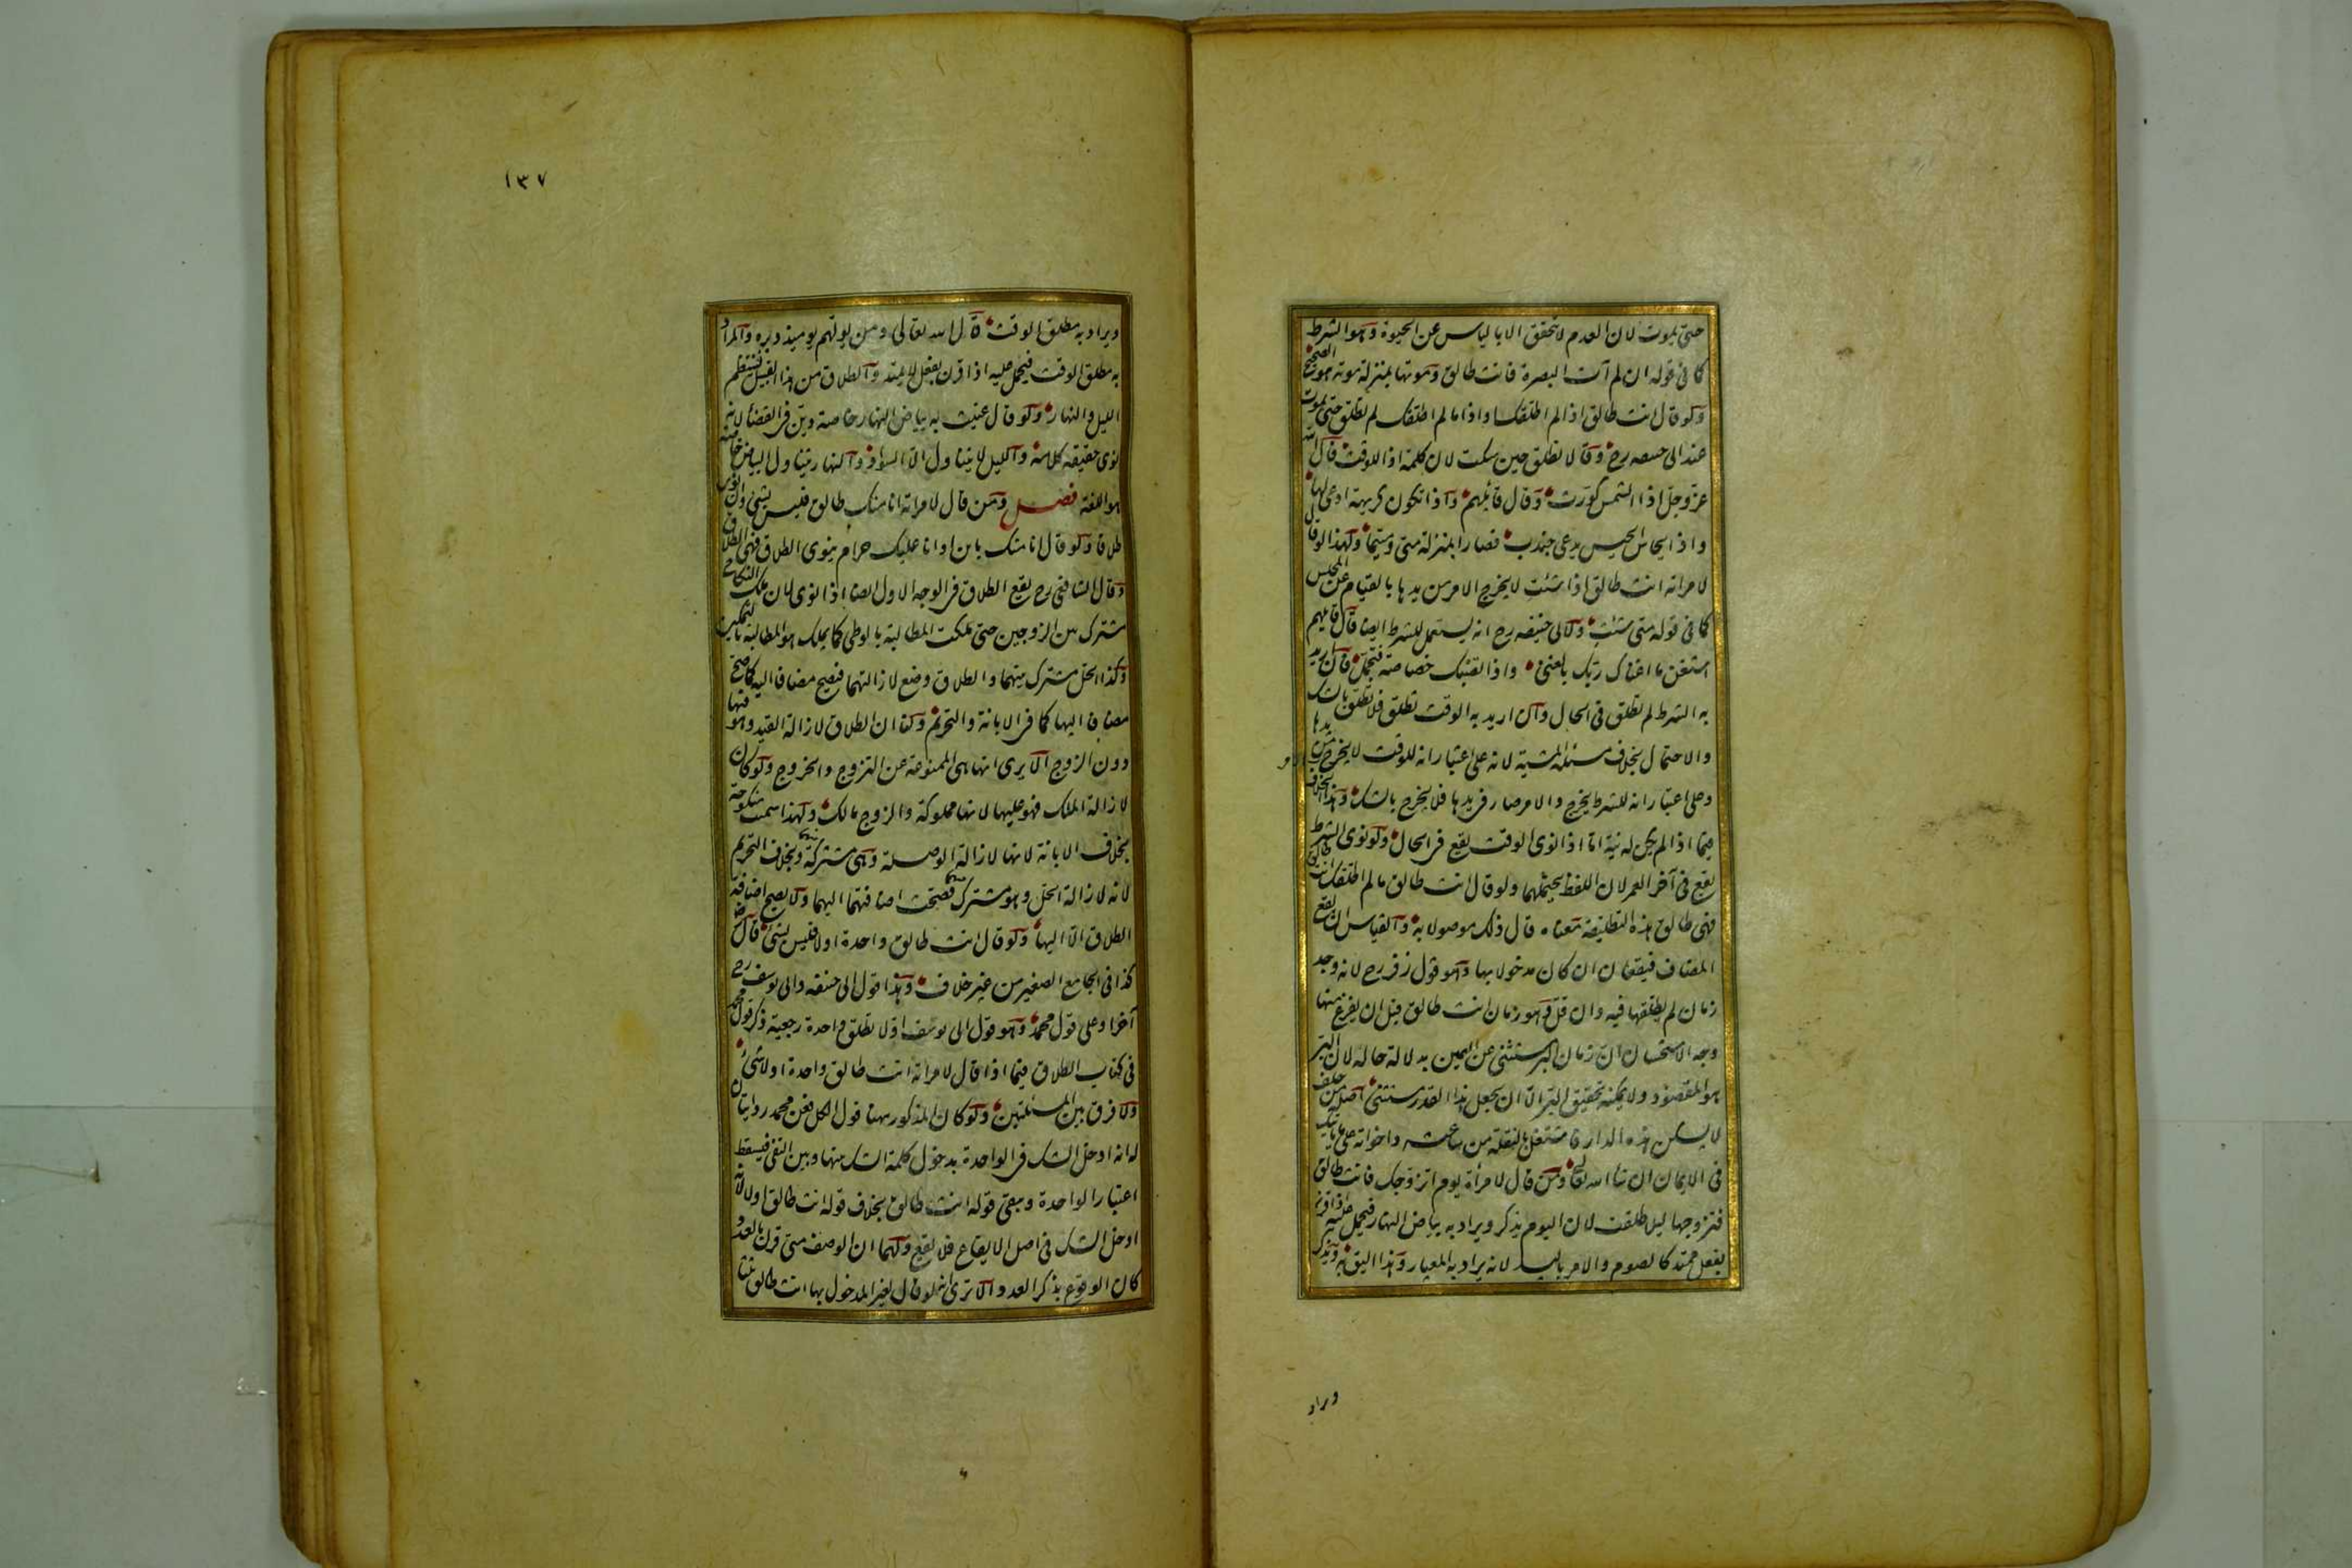 حتى يموت لان العدم لا يتحقق الا بالياس عن الحيوة وهو الشرط
كما فى قوله ان لم آت البصرة فانت طالق وموتها بمنزلة موته هو الصحيح
ولو قال انت طالق اذا لم اطلقك واذا ما لم اطلقك لم تطلق حتى يموت
عند ابى حنيفه رح وقالا تطلق حين سكت لان كلمة اذا للوقت قال الله
عز وجل اذا الشمس كورت وقال قائلهم واذا تكون كريهة ادعى لها
واذا يحاس الحيس يدعى جندب فصار بمنزلة متى ومتيما ولهذا لو قال
لامراته انت طالق اذا شئت لا يخرج الامر من يدها بالقيام عن المجلس
كما فى قوله متى شئت ولابى حنيفه رح انه يستعمل للشرط ايضا قال قايلهم
استغن ما اغناك ربك بالغنى واذا تصبك خصاصة فتجمل فان اريد
به الشرط لم تطلق فى الحال وان اريد به الوقت تطلق فلا تطلق بالشك
والاحتمال بخلاف مسئلة المشية لانه على اعتبار انه للوقت لا يخرج الامر من يدها
وعلى اعتبار انه للشرط يخرج والامر صار فى يدها فلا يخرج بالشك وهذا الخلاف
فيما اذا لم يكن له نية اما اذا نوى الوقت يقع فى الحال ولو نوى الشرط
يقع فى آخر العمر لان اللفظ يحتملهما ولو قال انت طالق ما لم اطلقك انت طالق
فهى طالق هذه التطليقة معناه قال ذلك موصولا به والقياس ان يقع
المضاف فيقعان ان كان مدخولا بها وهو قول زفر رح لانه وجد
زمان لم يطلقها فيه وان قل وهو زمان انت طالق قبل ان يفرغ منها
وجه الاستحسان ان زمان البر مستثنى عن اليمين بدلالة حاله لان البر
هو المقصود ولا يمكنه تحقيق البر الا ان يجعل هذا القدر مستثنى اصله من حلف
لا يسكن هذه الدار فاشتغل بالنقلة من ساعته واخواته على ما ياتيك
فى الايمان ان شا الله تعا ومن قال لامرأة يوم اتزوجك فانت طالق
فتزوجها ليلا طلقت لان اليوم يذكر ويراد به بياض النهار فيحمل عليه اذا قرن
بفعل يمتد كالصوم والامر باليد لانه يراد به المعيار وهذا اليق به ويذكر
ويراد
١٣٧
ويراد به مطلق الوقت قال الله تعالى ومن يولهم يوميذ دبره والمراد
به مطلق الوقت فيحمل عليه اذا قرن بفعل لا يمتد والطلاق من هذا القبيل فينتظم
الليل والنهار ولو قال عنيت به بياض النهار خاصة دين فى القضاء لانه
نوى حقيقة كلامه والليل لا يتناول الا السواد والنهار يتناول البياض خاصة
هو اللغة فصل ومن قال لامراته انا منك طالق فليس بشئ وان نوى
طلاقا ولو قال انا منك باين او انا عليك حرام ينوى الطلاق فهى طالق
وقال الشافعى رح يقع الطلاق فى الوجه الاول ايضا اذا نوى لان ملك النكاح
مشترك بين الزوجين حتى ملكت المطالبة بالوطى كما يملك هو المطالبة بالتمكين
وكذا الحل مشترك بينهما والطلاق وضع لازالتهما فيصح مضافا اليه كما صح
مضافا اليها كما فى الابانة والتحريم ولنا ان الطلاق لازالة القيد وهو فيها
دون الزوج الا يرى انها هى الممنوعة عن التزوج والخروج ولو كان
لازالة الملك فهو عليها لانها مملوكة والزوج مالك ولهذا سميت منكوحة
بخلاف الابانة لانها لازالة الوصلة وهى مشتركة بينهما وبخلاف التحريم
لانه لازالة الحل وهو مشترك بينهما فصحت اضافتهما اليهما ولا يصح اضافة
الطلاق الا اليها ولو قال انت طالق واحدة اولا فليس بشئ قال رض
كذا فى الجامع الصغير من غير خلاف وهذا قول ابى حنيفه وابى يوسف رح
آخرا وعلى قول محمد وهو قول ابى يوسف اولا تطلق واحدة رجعية ذكر قول محمد
فى كتاب الطلاق فيما اذا قال لامراته انت طالق واحدة اولا شئ
ولا فرق بين المسئلتين ولو كان المذكور ههنا قول الكل فعن محمد روايتان
له انه ادخل الشك فى الواحدة بدخول كلمة الشك بينها وبين النفى فيسقط
اعتبار الواحدة ويبقى قوله انت طالق بخلاف قوله انت طالق اولا لانه
ادخل الشك فى اصل الايقاع فلا يقع ولهما ان الوصف متى قرن بالعدد
كان الوقوع بذكر العدد الا ترى انه لو قال لغير المدخول بها انت طالق ثلثا